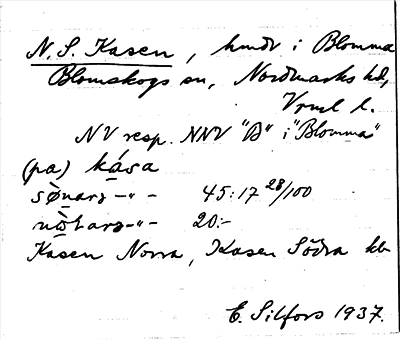 N. S. Kasen, hmdr i Blomma
Blomskogs sn, Nordmarks hd,
Vrml l.
NV resp. NNV "B" i "Blomma"
(pa) kása
sø̀narʒ -"- 45:17 28/100
nø̀tarʒ -"- 20:-
Kasen Norra, Kasen Södra kb
E. Silfors 1937.